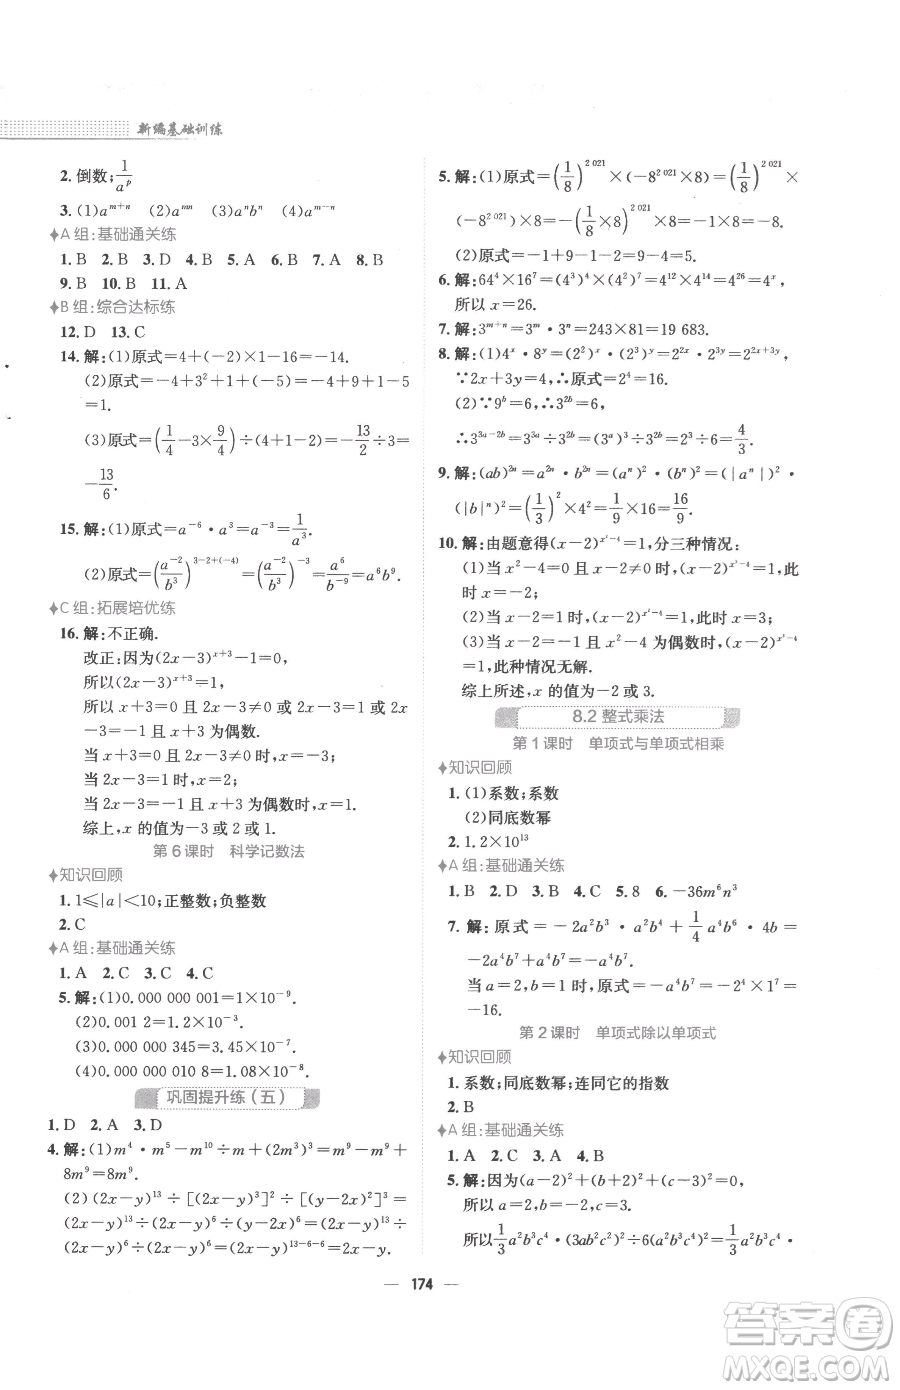 新编基础训练
2. 倒数;1/a^p
3. (1)a^{m+n} (2)a^{mn} (3)a^n b^n (4)a^{m-n}
A 组:基础通关练
1. B 2. B 3. D 4. B 5. A 6. B 7. A 8. B
9. B 10. B 11. A
B 组:综合达标练
12. D 13. C
14. 解:(1)原式=4+(-2)×1-16=-14.
(2)原式=-4+3^2+1+(-6)+1=-4+9+1-6+1-5
=1.
(3)原式=(1/4-3×9/4)÷(4-1)=-13/2÷3=
-13/6.
15. 解:(1)原式=a^{-6}·a^3=a^{-3}=1/a^3.
(2)原式=(a^{-2}/b^3)^{3-2+(-4)}=(a^{-2}/b^3)^{-3}=a^6/b^{-9}=a^6b^9.
C 组:拓展培优练
16. 解:不正确.
改正:因为(2x-3)^{x+3}-1=0,
所以(2x-3)^{x+3}=1,
所以 x+3=0 且 2x-3≠0 或 2x-3=1 或 2x
-3=-1 且 x+3 为偶数.
当 x+3=0 且 2x-3≠0 时,x=-3;
当 2x-3=1 时,x=2;
当 2x-3=-1 且 x+3 为偶数时,x=1.
综上,x 的值为-3 或 2 或 1.
第 6 课时 科学记数法
知识回顾
1. 1≤|a|<10;正整数;负整数
2. C
A 组:基础通关练
1. A 2. C 3. C 4. C
5. 解:(1)0.000 000 001=1×10^{-9}.
(2)0.001 2=1.2×10^{-3}.
(3)0.000 000 345=3.45×10^{-7}.
(4)0.000 000 010 8=1.08×10^{-8}.
巩固提升练(五)
1. D 2. A 3. D
4. 解:(1)m^4·m^5-m^{10}÷m+(2m^3)^3=m^9-m^9+
8m^9=8m^9.
(2)(2x-y)^{13}÷[(2x-y)^3]^2÷[(y-2x)^2]^3=
(2x-y)^{13}÷(2x-y)^6÷(y-2x)^6=(2x-y)^{13}÷
(2x-y)^6÷(2x-y)^6=(2x-y)^{13-6-6}=2x-y.
5. 解:(1)原式=(1/8)^{2 021}×(-8^{2 021}×8)=(1/8)^{2 021}×
(-8^{2 021})×8=-(1/8×8)^{2 021}×8=-1×8=-8.
(2)原式=9-4-1+2-2=9-4=5.
6. 解:64^4×16^7=(4^3)^4×(4^2)^7=4^{12}×4^{14}=4^{26}=4^x,
所以 x=26.
7. 解:3^{m+n}=3^m·3^n=243×81=19 683.
8. 解:(1)4^x·8^y=(2^2)^x·(2^3)^y=2^{2x}·2^{3y}=2^{2x+3y},
∵2x+3y=4,∴原式=2^4=16.
(2)∵9^b=6,∴3^{2b}=6,
∴3^{3a-2b}=3^{3a}÷3^{2b}=(3^a)^3÷6=2^3÷6=4/3.
9. 解:(ab)^{2n}=a^{2n}·b^{2n}=(a^n)^2·(b^n)^2=(|a^n|)^2·
(|b|^n)^2=(1/3)^2×4^2=1/9×16=16/9.
10. 解:由题意得(x-2)^{x^2-4}=1,分三种情况:
(1)当 x^2-4=0 且 x-2≠0 时,(x-2)^{x^2-4}=1,此
时 x=-2;
(2)当 x-2=1 时,(x-2)^{x^2-4}=1,此时 x=3;
(3)当 x-2=-1 且 x^2-4 为偶数时,(x-2)^{x^2-4}
=1,此种情况无解.
综上所述,x 的值为-2 或 3.
8.2 整式乘法
第 1 课时 单项式与单项式相乘
知识回顾
1. (1)系数;系数
(2)同底数幂
2. 1.2×10^{13}
A 组:基础通关练
1. B 2. D 3. B 4. C 5. 8 6. -36m^6n^3
7. 解:原式=-2a^2b^3·a^2b^4+1/4a^4b^6·4b=
-2a^4b^7+a^4b^7=-a^4b^7.
当 a=-2,b=1 时,原式=-a^4b^7=-2^4×1^7=
-16.
第 2 课时 单项式除以单项式
知识回顾
1. 系数;同底数幂;连同它的指数
2. B
A 组:基础通关练
1. A 2. C 3. A 4. B
5. 解:因为(a-2)^2+(b-2)^2+(c-3)^2=0,
所以 a=2,b=2,c=3,
所以1/3a^2b^3c^4·(3ab^2c^2)^2÷6(a^2b^3c^4)^2=1/3a^2b^3c^4·
174
答案圈
MXQE.COM